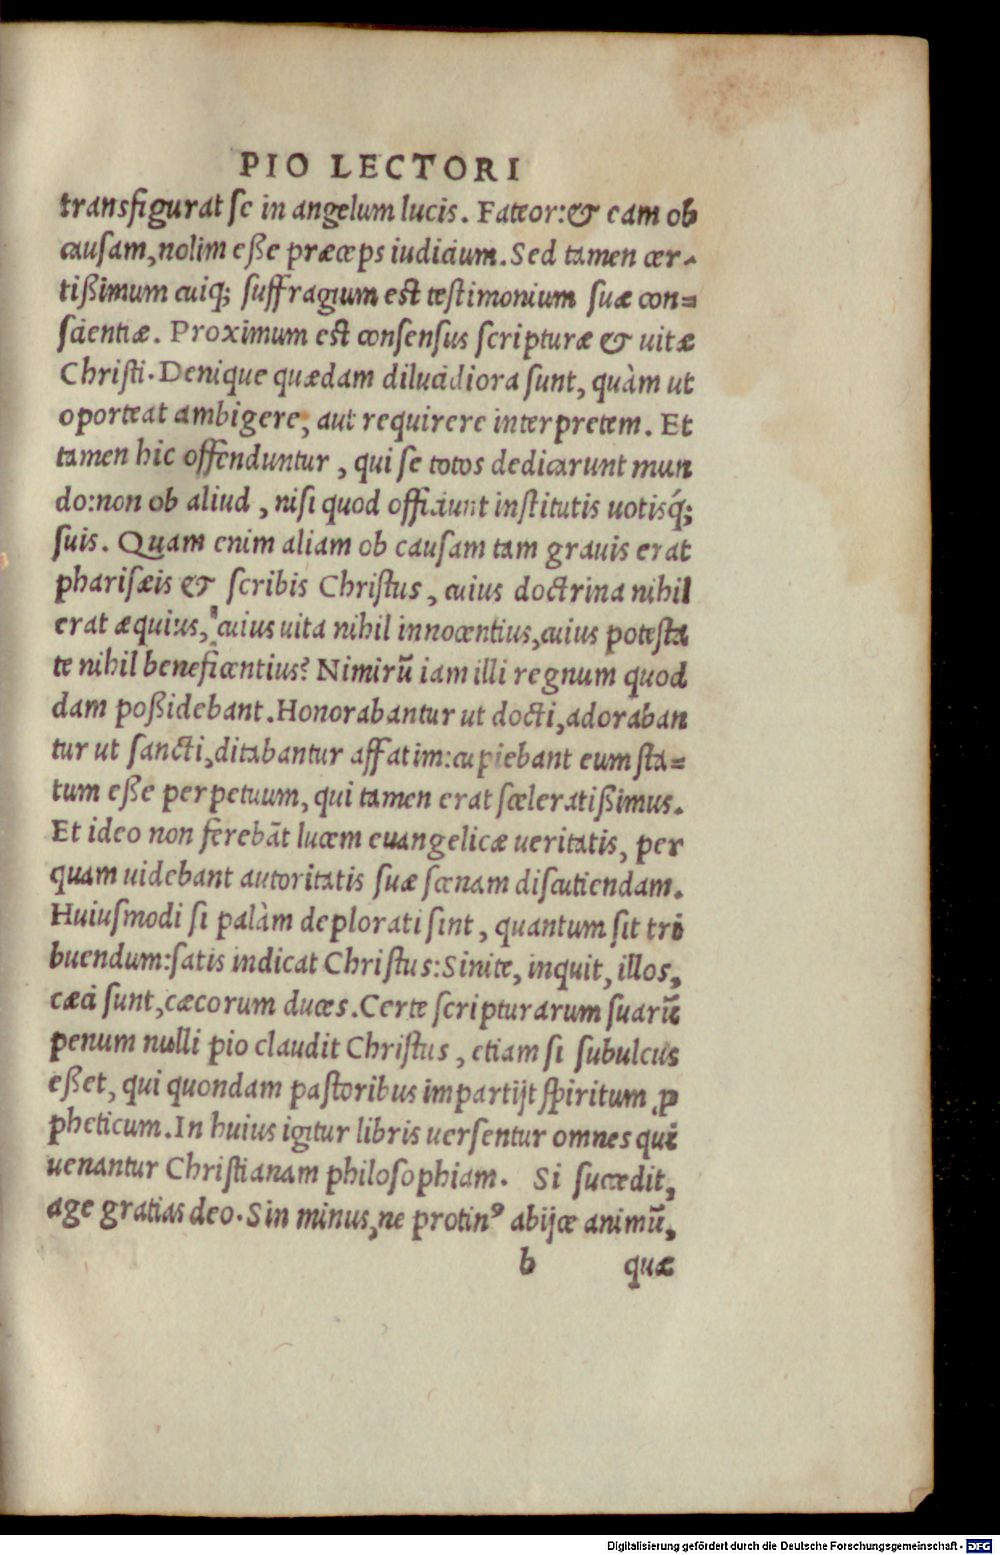 PIO LECTORI
transfigurat se in angelum lucis. Fateor:& eam ob
causam, nolim eße præceps iudicium. Sed tamen cer-
tißimum cuiq; suffragium est testimonium suæ con=
scientiæ. Proximum est consensus scripturæ & uitæ
Christi. Denique quædam dilucidiora sunt, quàm ut
oporteat ambigere, aut requirere interpretem. Et
tamen hic offenduntur, qui se totos dedicarunt mun
do:non ob aliud, nisi quod officiunt institutis uotisq́;
suis. Quam enim aliam ob causam tam grauis erat
pharisæis & scribis Christus, cuius doctrina nihil
erat æquius, cuius uita nihil innocentius, cuius potesta
te nihil beneficentius? Nimirũ iam illi regnum quod
dam poßidebant. Honorabantur ut docti, adoraban
tur ut sancti, ditabantur affatim:cupiebant eum sta=
tum eße perpetuum, qui tamen erat sceleratißimus.
Et ideo non ferebãt lucem euangelicæ ueritatis, per
quam uidebant autoritatis suæ scenam discutiendam.
Huiusmodi si palàm deplorati sint, quantum sit tri
buendum:satis indicat Christus:Sinite, inquit, illos,
cæci sunt, cæcorum duces. Certe scripturarum suarũ
penum nulli pio claudit Christus, etiam si subulcus
eßet, qui quondam pastoribus impartijt spiritum ꝓ
pheticum. In huius igitur libris uersentur omnes qui
uenantur Christianam philosophiam. Si succedit,
age gratias deo. Sin minus, ne protinꝰ abijce animũ,
b quæ
Digitalisierung gefördert durch die Deutsche Forschungsgemeinschaft - DFG